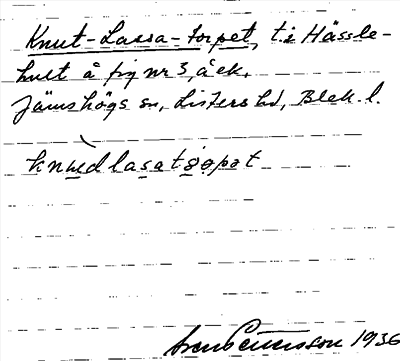 Knut-Lassa-torpet, t.i Hässle-
hult å fig nr 3, å ek.
Jämshögs sn, Listers hd, Blek. l.
knu̱èdlasatọpət
1936